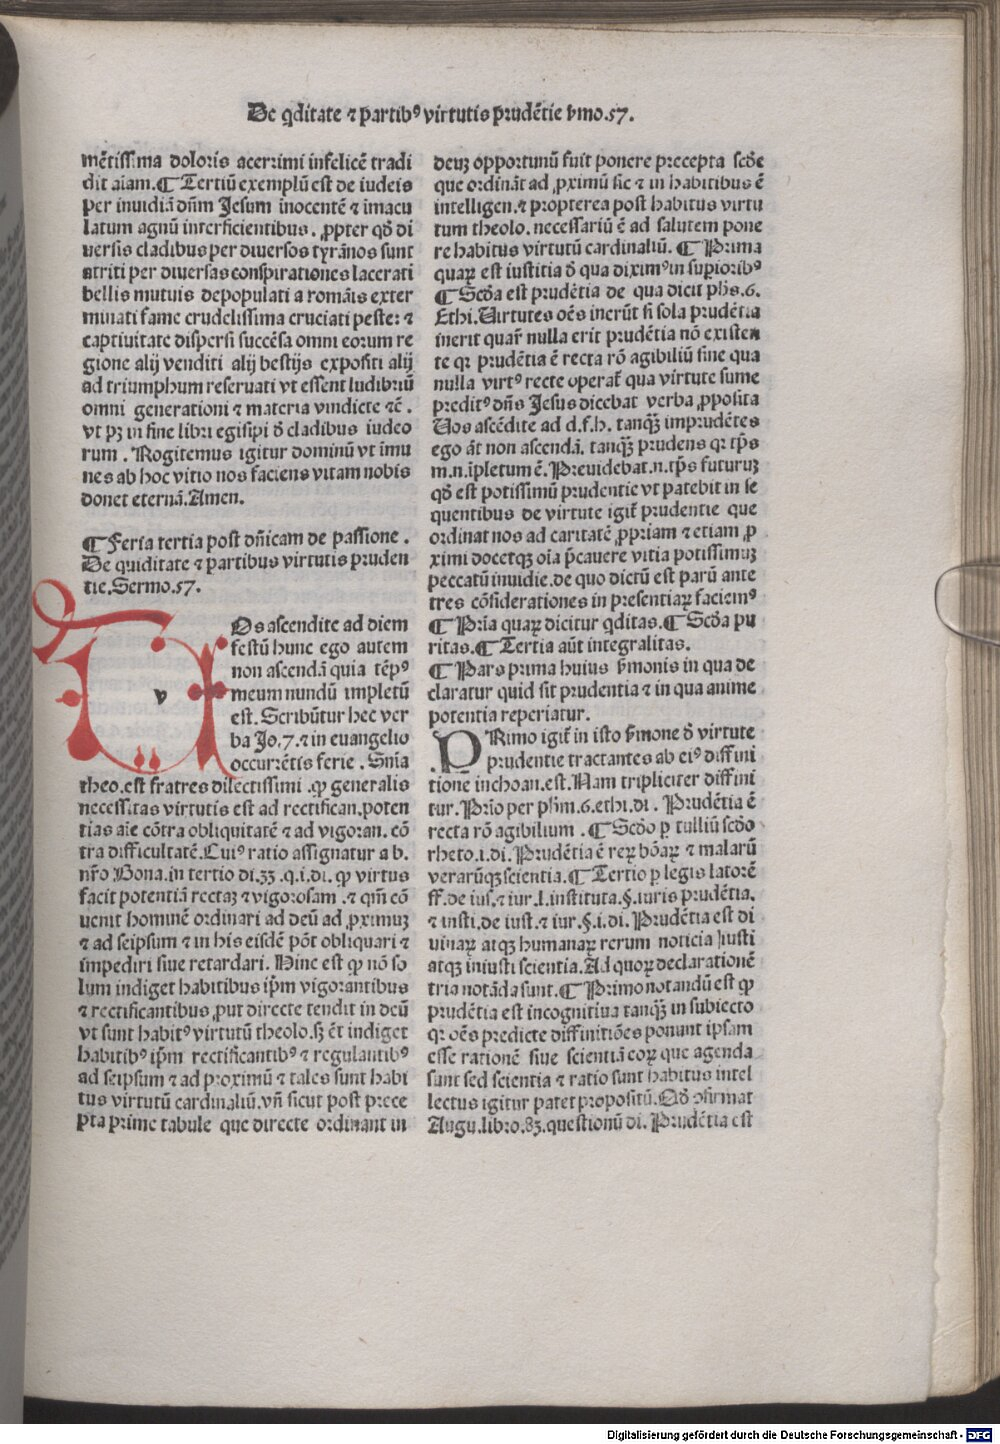 De qditate ⁊ partibꝰ virtutis prudētie ẜmo.57.
mētissima doloris acerrimi infelicē tradi
dit aīam.¶ Tertiū exemplū est de iudeis
per inuidiā dn̄m Jesum inocentē ⁊ īmacu
latum agnū interficientibus. ꝓpter qd̄ di
uersis cladibus per diuersos tyrānos sunt
atriti per diuersas conspirationes lacerati
bellis mutuis depopulati a romāis exter
minati fame crudelissima cruciati peste: ⁊
captiuitate dispersi succēsa omni eorum re
gione alij venditi alij bestijs expositi alij
ad triumphum reseruati vt essent ludibriū
omni generationi ⁊ materia vindicte ⁊c̄.
vt pꝫ in fine libri egisipi d̄ cladibus iudeo
rum. Rogitemus igitur dominū vt īmu
nes ab hoc vitio nos faciens vitam nobis
donet eternā. Amen.
¶ Feria tertia post dn̄icam de passione.
De quiditate ⁊ partibus virtutis pruden
tie. Sermo.57.
v
Os ascendite ad diem
festū hunc ego autem
non ascendā quia tēpꝰ
meum nundū impletū
est. Scribūtur hec ver
ba Jo.7. ⁊ in euangelio
occurrētis ferie. Sn̄ia
theo. est fratres dilectissimi. ꝙ generalis
necessitas virtutis est ad rectifican. poten
tias aīe cōtra obliquitatē ⁊ ad vigoran. cō
tra difficultatē. Cuiꝰ ratio assignatur a b.
nr̄o Bona. in tertio di.33.q.i.di. ꝙ virtus
facit potentiā rectaꝫ ⁊ vigorosam. ⁊ qm̄ cō
uenit hominē ordinari ad deū ad ꝓximuꝫ
⁊ ad seipsum ⁊ in his eisdē pōt obliquari ⁊
impediri siue retardari. Hinc est ꝙ nō so
lum indiget habitibus ip̄m vigorantibus
⁊ rectificantibus ꝓut directe tendit in deū
vt sunt habitꝰ virtutū theolo. sꝫ ēt indiget
habitibꝰ ip̄m rectificantibꝰ ⁊ regulantibꝰ
ad seipsum ⁊ ad proximū ⁊ tales sunt habi
tus virtutū cardinaliū. vn̄ sicut post prece
pta prime tabule que directe ordinant in
deuꝫ opportunū fuit ponere precepta scd̄e
que ordināt ad ꝓximū sic ⁊ in habitibus ē
intelligen. ⁊ propterea post habitus virtu
tum theolo. necessariū ē ad salutem pone
re habitus virtutū cardinaliū. ¶ Prima
quaꝝ est iustitia d̄ qua diximꝰ in supioribꝰ
¶ Scd̄a est prudētia de qua dicit ph̄s.6.
Ethi. Virtutes oēs inerūt si sola prudētia
inerit quaꝝ nulla erit prudētia nō existen
te qꝛ prudētia ē recta rō agibiliū sine qua
nulla virtꝰ recte operat̄ qua virtute sume
preditꝰ dn̄s Jesus dicebat verba ꝓposita
Uos ascēdite ad d.f.h. tanqꝫ̄ imprudētes
ego āt non ascendā. tanqꝫ̄ prudens qꝛ tp̄s
m.n.īpletum ē. Preuidebat.n.tp̄s futuruꝫ
qd̄ est potissimū prudentie vt patebit in se
quentibus de virtute igit̄ prudentie que
ordinat nos ad caritatē ꝓpriam ⁊ etiam ꝓ
ximi docetqꝫ oīa p̄cauere vitia potissimuꝫ
peccatū inuidie. de quo dictū est parū ante
tres cōsiderationes in presentiaꝝ faciemꝰ
¶ Pria quaꝝ dicitur qditas. ¶ Scd̄a pu
ritas. ¶ Tertia aūt integralitas.
¶ Pars prima huius ẜmonis in qua de
claratur quid sit prudentia ⁊ in qua anime
potentia reperiatur.
PRimo igit̄ in isto ẜmone d̄ virtute
prudentie tractantes ab eiꝰ diffini
tione inchoan. est. Nam tripliciter diffini
tur. Prīo per ph̄m.6.ethi.di. Prudētia ē
recta rō agibilium. ¶ Scd̄o ꝑ tulliū scd̄o
rheto.i.di. Prudētia ē reꝝ bōaꝝ ⁊ malarū
verarūqꝫ scientia. ¶ Tertio ꝑ legis latorē
ff. de ius. ⁊ iur. l. instituta. §. iuris prudētia.
⁊ insti. de iust. ⁊ iur. §.i.di. Prudētia est di
uinaꝝ atqꝫ humanaꝝ rerum noticia iusti
atqꝫ iniusti scientia. Ad quoꝝ declarationē
tria notāda sunt. ¶ Primo notandū est ꝙ
prudētia est incognitiua tanqꝫ̄ in subiecto
qꝛ oēs predicte diffinitiōes ponunt ipsam
esse rationē siue scientiā eoꝝ que agenda
sunt sed scientia ⁊ ratio sunt habitus intel
lectus igitur patet propositū. Qd̄ ꝯfirmat
Augu. libro.83. questionū di. Prudētia est
Digitalisierung gefördert durch die Deutsche Forschungsgemeinschaft - DFG